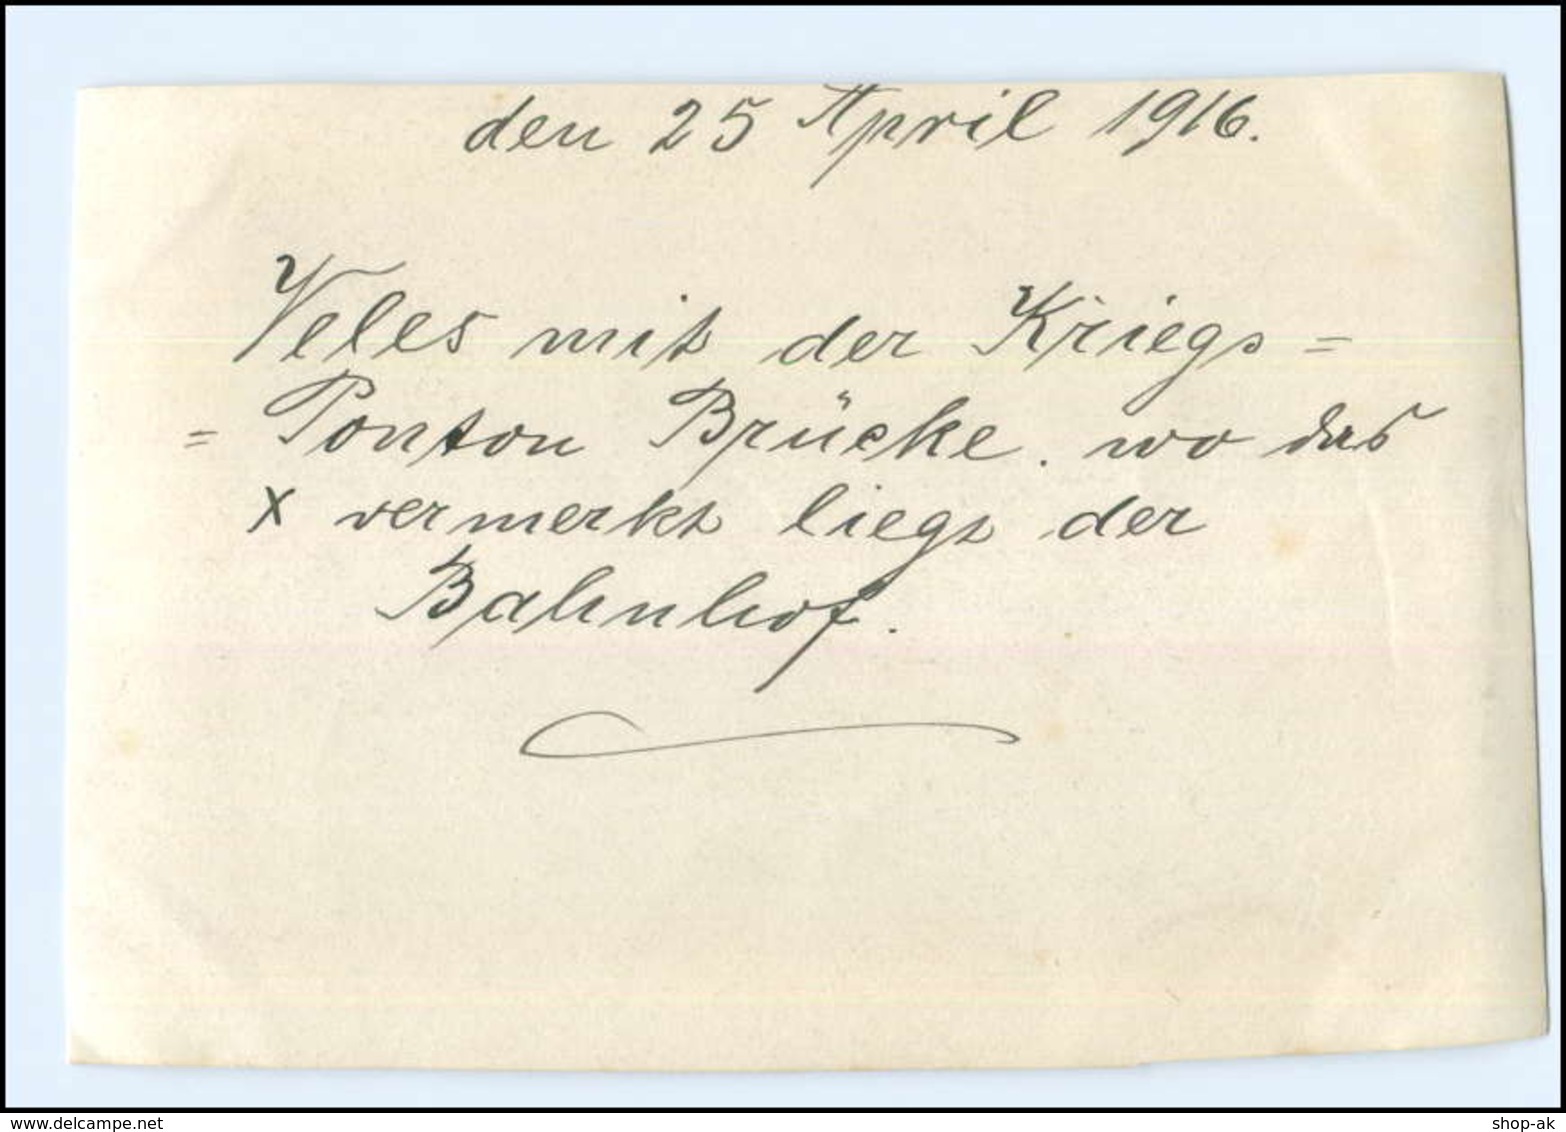 den 25 April 1916.
Veles mit der Kriegs=
=Ponton Brücke. wo das
x vermerkt liegt der
Bahnhof.
shop-ak